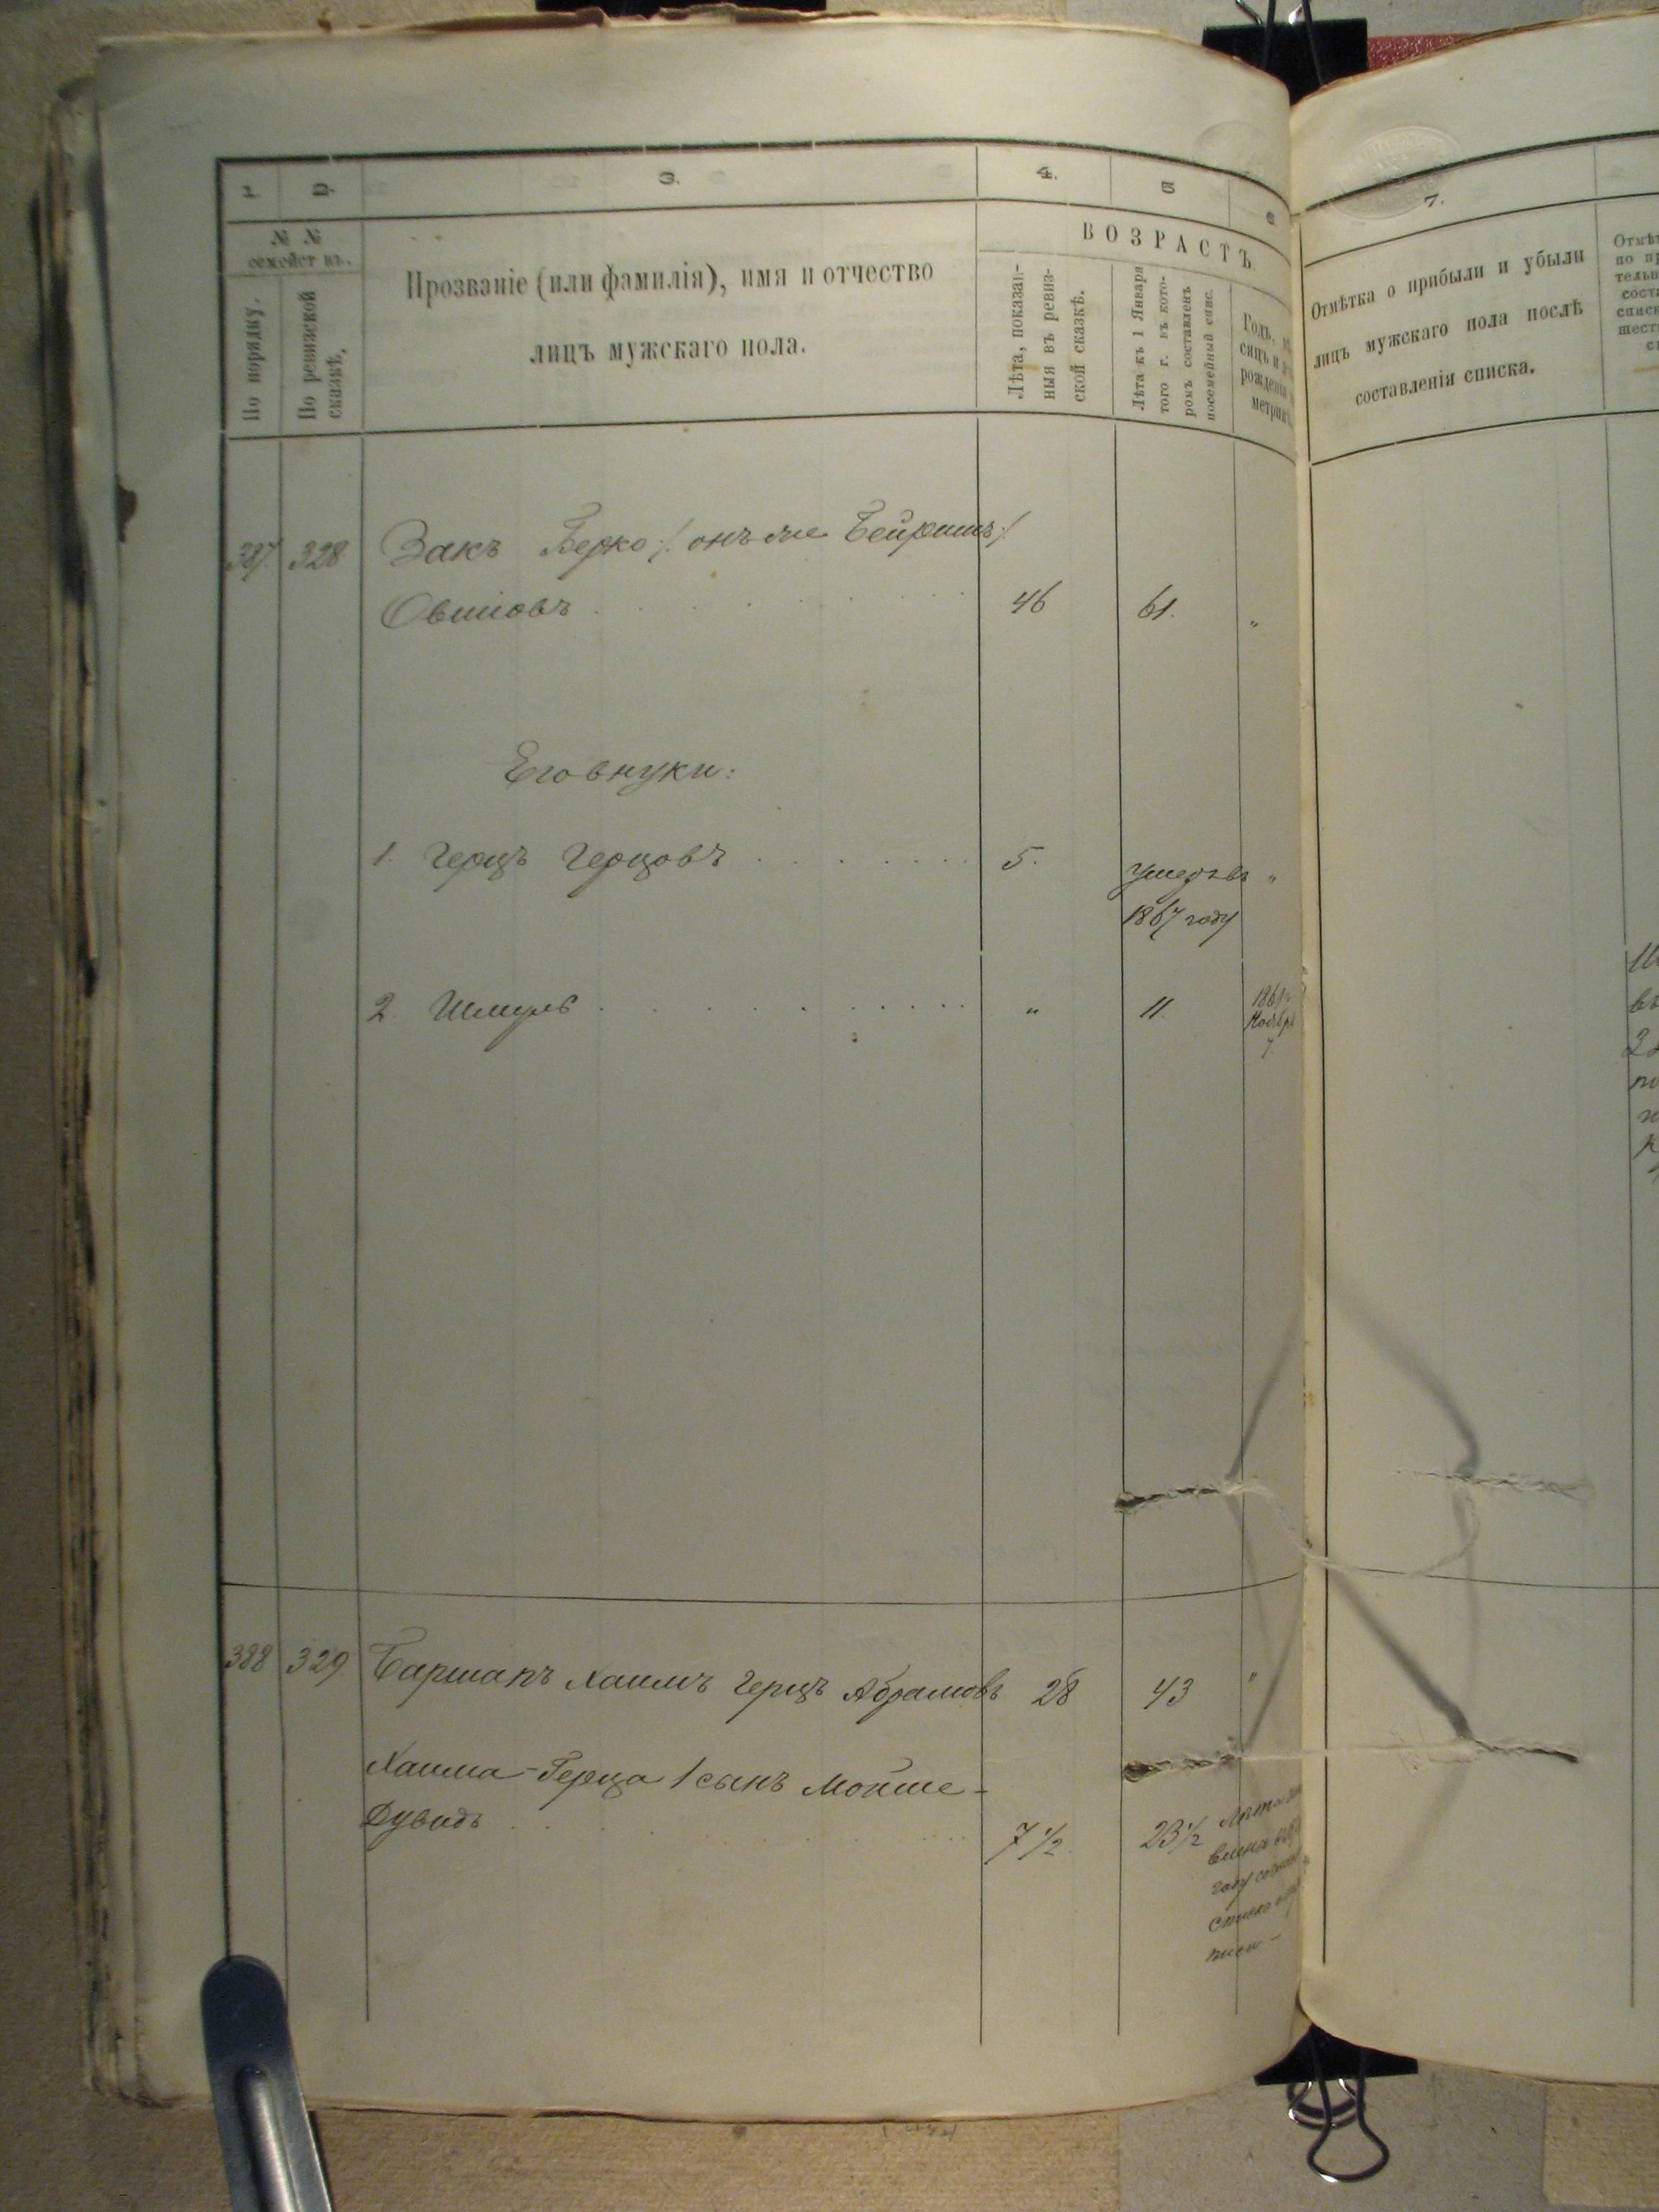 1.
2.
3.
4.
5
6
7.
№ №
семейст въ.
По порядку.
По ревизской
сказкѣ.
Прозваніе (или фамилія), имя и отчество
лицъ мужскаго пола.
ВОЗРАСТЪ
Лѣта, показан-
ныя въ ревиз-
ской сказкѣ.
Лѣта къ 1 Января
того г. въ кото-
ромъ составленъ
посемейный спис.
Годъ,
сяцъ и
рожденія
метрик
Отмѣтка о прибыли и убыли
лицъ мужскаго пола послѣ
составленія списка.
387 328 Закъ Берко /: онъ же Бейришъ :/
Овшіовъ 46 61. "
Его внуки:
1. Герцъ Герцовъ 5. Умеръ въ "
1867 году
2. Шмуль " 11. 1861
Ноября
7.
388 329 Баршапъ Хаимъ Герцъ Абрамовъ 28 43 "
Хаима-Герца 1 сынъ Мойше-
Дувидъ 7 1/2. 23 1/2
году